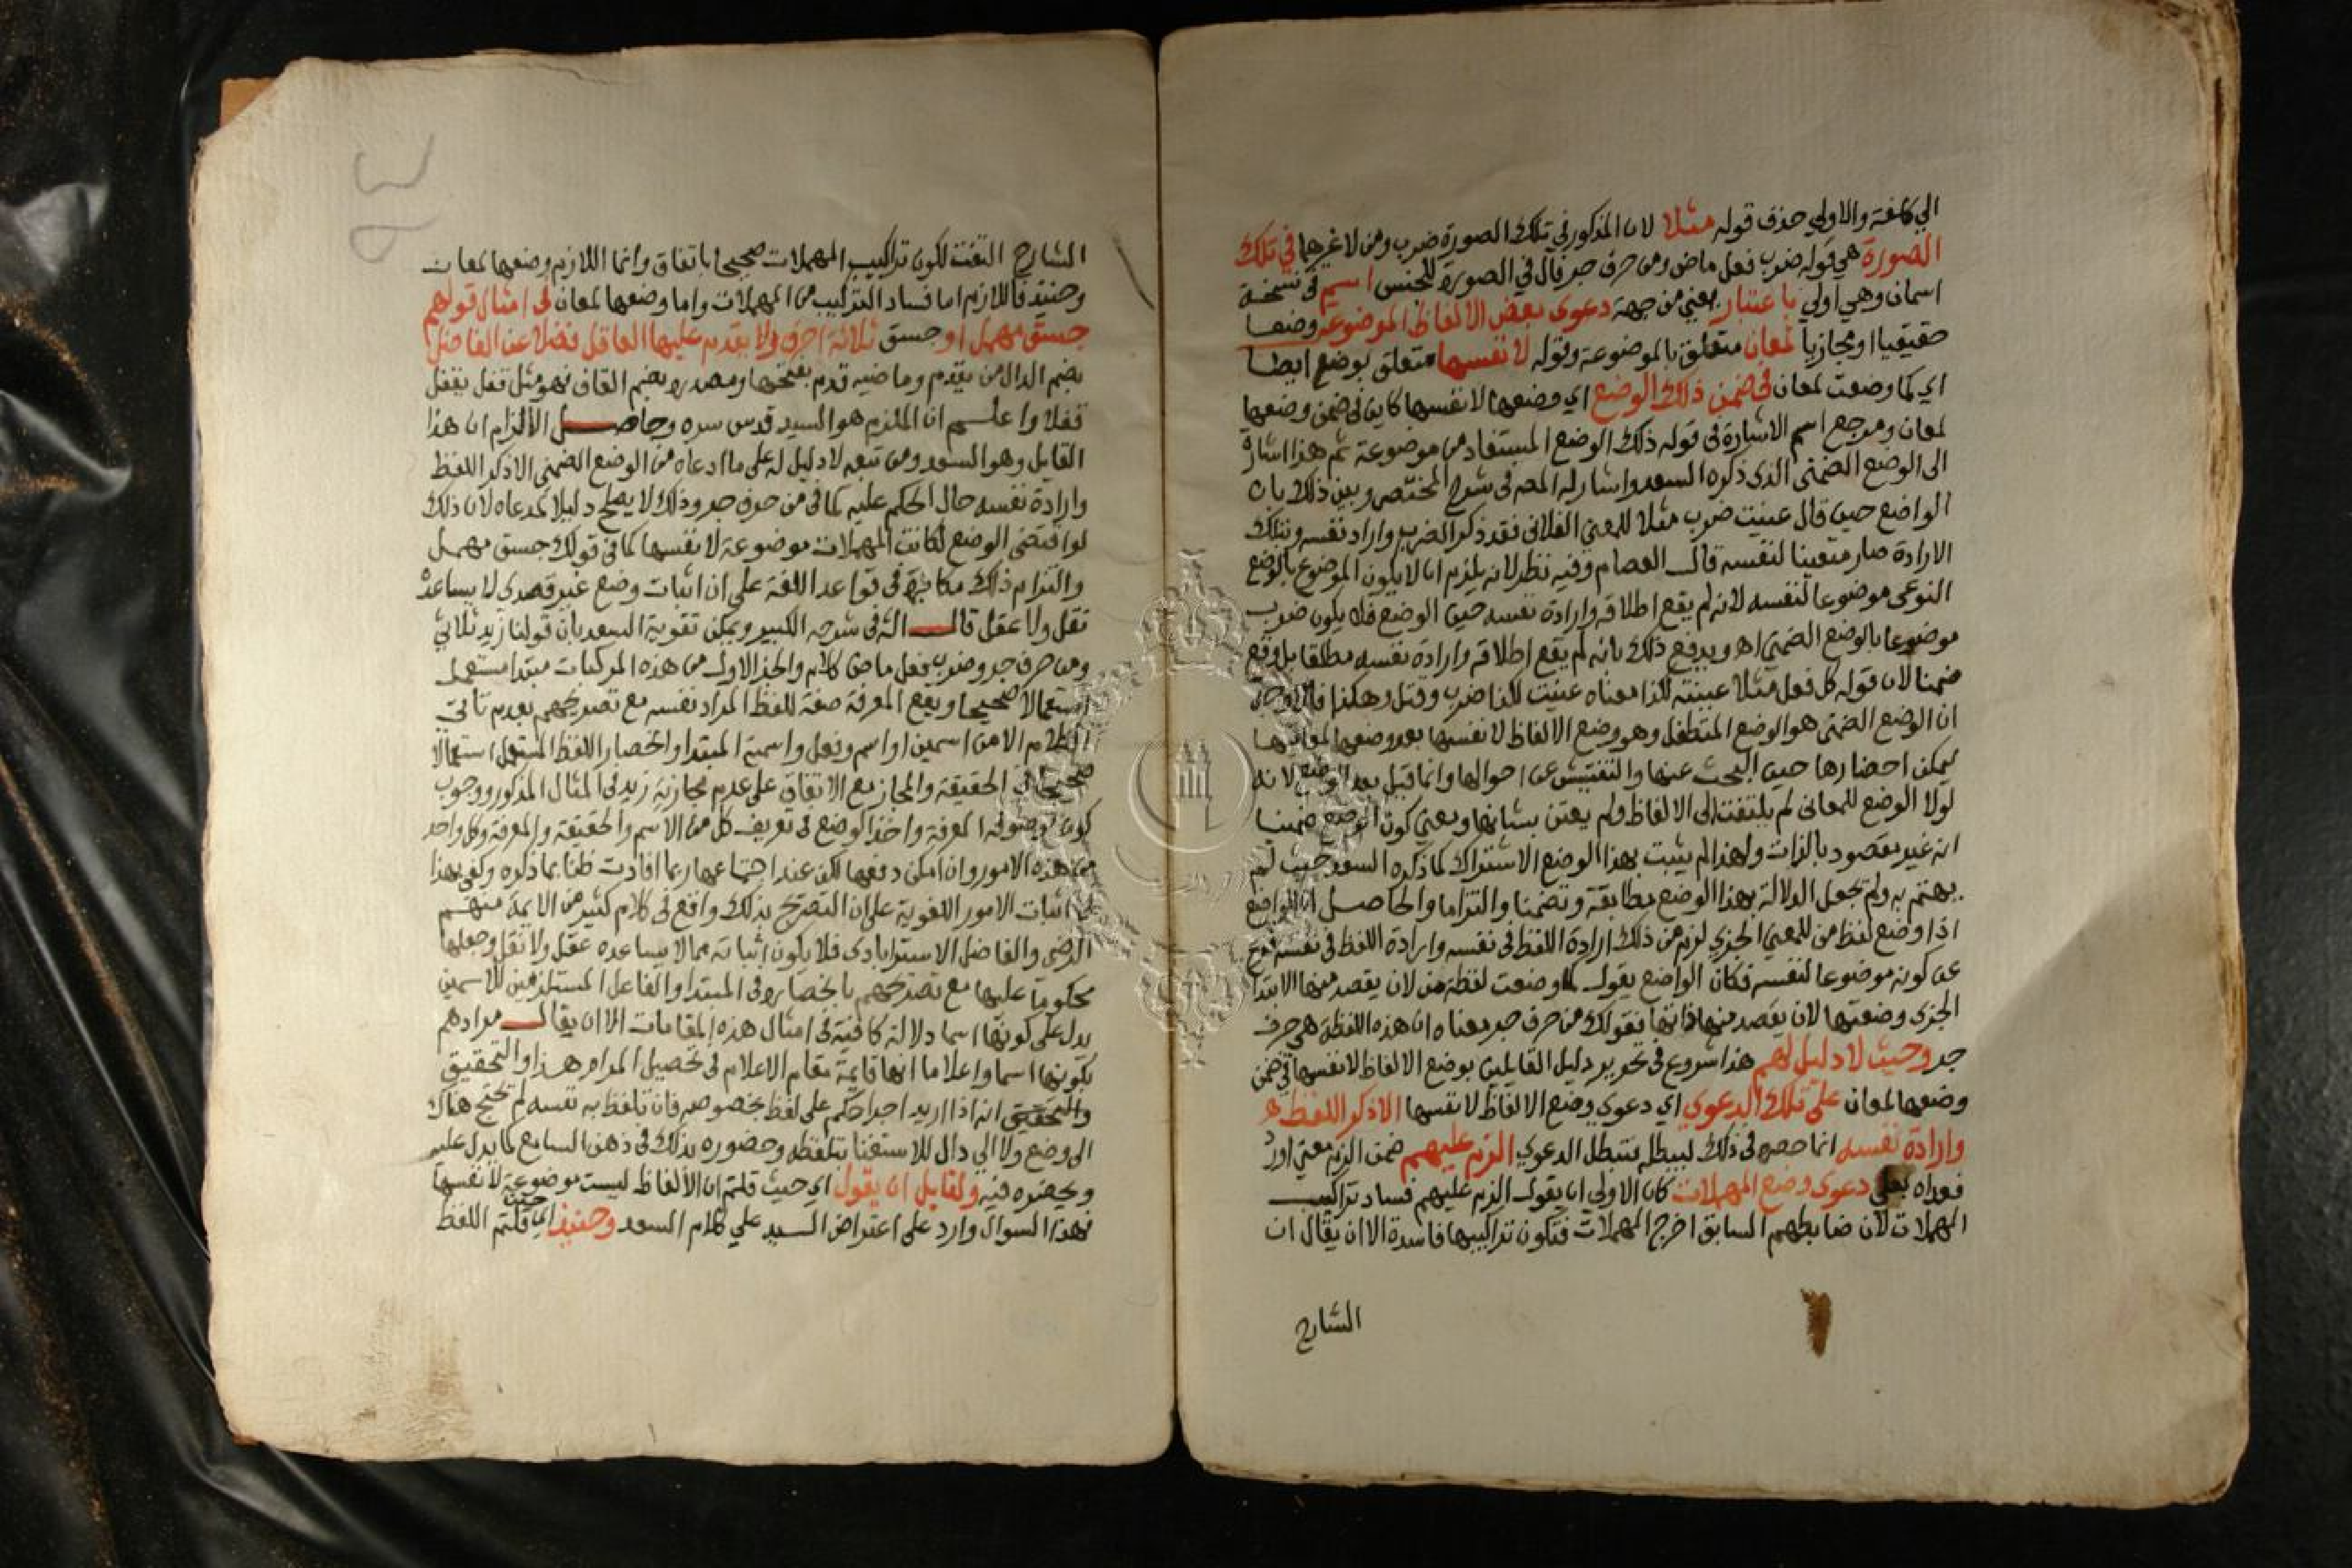 الي كلمة والاولي حذف قوله مثلا لان المذكور في تلك الصورة ضرب ومن لا غيرهما في تلك
الصورة هي قوله ضرب فعل ماض ومن حرف جر فال في الصورة للجنس اسم في نسخة
اسمان وهي اولي باعتبار يعني من جهة دعوي بعض الالفاظ الموضوعة وضعا
حقيقيا او مجازيا لمعان متعلق بالموضوعة وقوله لانفسها متعلق بوضع ايضا
اي كما وضعت لمعان في ضمن ذلك الوضع اي وضعها لانفسها كاين في ضمن وضعها
لمعان ومرجع اسم الاشارة في قوله ذلك الوضع المستفاد من موضوعة ثم هذا اشارة
الى الوضع الضمني الذي ذكره السعد واشار له المصـ في شرح المختصر وبين ذلك بان
الواضع حين قال عينت ضرب مثلا للمعني الفلاني فقد ذكر الضرب واراد نفسه وبتلك
الارادة صار متعينا لنفسه قال العصام وفيه نظر لانه يلزم ان لا يكون الموضوع بالوضع
النوعي موضوعا لنفسه لانه لم يقع اطلاقه وارادة نفسه حين الوضع فلا يكون ضرب
موضوعا بالوضع الضمني اهـ ويدفع ذلك بانه لم يقع اطلاقه وارادة نفسه مطلقا بل وقع
ضمنا لان قوله كل فعل مثلا عينته لكذا معناه عينت لكذا ضرب وقتل وهكذا
ان الوضع الضمني هو الوضع المتطفل وهو وضع الالفاظ لانفسها بعد وضعها لمعانيها
ليمكن احضارها حين البحث عنها والتفتيش عن احوالها وانما قيل بعد الوضع لانه
لولا الوضع للمعاني لم يلتفت الى الالفاظ ولم يعتن بشانها ومعني كون الوضع ضمنيا
انه غير مقصود بالذات ولهذا لم يثبت بهذا الوضع الاشتراك كما ذكره السعد حيث لم
يهتم به ولم تجعل الدلالة بهذا الوضع مطابقة وتضمنا والتزاما والحاصل ان الواضع
اذا وضع لفظ من للمعني الجزي لزم من ذلك ارادة اللفظ في نفسه وارادة اللفظ في نفسه فرع
عن كونه موضوعا لنفسه فكان الواضع يقول كما وضعت لفظة من لان يقصد منها الابتدا
الجزي وضعتها لان يقصد منها ذاتها فقولك من حرف جر معناه ان هذه اللفظة هي حرف
جر وحيث لا دليل لهم هذا شروع في تحرير دليل القايلين بوضع الالفاظ لانفسها في ضمن
وضعها لمعان على تلك الدعوي اي دعوي وضع الالفاظ لانفسها الا ذكر اللفظ
وارادة نفسه انما حصر في ذلك ليبطله فتبطل الدعوي الزم عليهم ضمن الزم معني اورد
فعداه بعلي دعوي وضع المهملات كان الاولي ان يقول الزم عليهم فساد تراكيب
المهملات لان ضابطهم السابق اخرج المهملات فتكون تراكيبها فاسدة الا ان يقال ان
الشارح
الشارح التفت لكون تراكيب المهملات صحيحا باتفاق وانما اللازم وضعها لمعان
وحنيئذ فاللازم اما فساد التركيب من المهملات واما وضعها لمعان في امثال قولهم
جسق مهمل او جسق ثلاثة احرف ولا يقدم عليها العاقل فضلا عن الفاضل
بضم الدال من يقدم وماضيه قدم بفتحها ومصدره بضم القاف فهو مثل قفل يقفل
قفلا واعلم ان الملزم هو السيد قدس سره وحاصل الالزام ان هذا
القايل وهو السعد ومن تبعه لا دليل له على ما ادعاه من الوضع الضمني الا ذكر اللفظ
وارادة نفسه حال الحكم عليه كما في من حرف جر وذلك لا يصلح دليلا لمدعاه لان ذلك
لو اقتضى الوضع لكانت المهملات موضوعة لانفسها كما في قولك جسق مهمل
والتزام ذلك مكابرة في قواعد اللغة علي ان اثبات وضع غير قصدي لا يساعده
نقل ولا عقل قال الشـ في شرحه الكبير ويمكن تقوية السعد بان قولنا زيد ثلاثي
ومن حرف جر وضرب فعل ماض كلام والجز الاول من هذه المركبات مبتدا مستعمل
استعمالا صحيحا ويقع المعرفة صفة للفظ المراد نفسه مع تصريحهم بعدم تاتي
الكلام الا من اسمين او اسم وفعل واسمية المبتدا وانحصار اللفظ المستعمل استعمالا
صحيحا في الحقيقة والمجاز مع الاتفاق على عدم مجازية زيد في المثال المذكور ووجوب
كون موصوف المعرفة واخذ الوضع في تعريف كل من الاسم والحقيقة والمعرفة وكل واحد
من هذه الامور وان امكن دفعها لكن عند اجتماعها ربما افادت ظنا بما ذكره وكفي بهذا
في اثبات الامور اللغوية على ان التصريح بذلك واقع في كلام كثير من الايمة منهم
الرضي والفاضل الاسترابادي فلا يكون اثباته مما لا يساعده عقل ولا نقل وجعلها
محكوما عليها مع تصريحهم بانحصاره في المبتدا والفاعل المستلزمين للاسمين
يدل على كونها اسما دلالة كافية في امثال هذه المقامات الا ان يقال مرادهم
بكونها اسما واعلاما انها قايمة مقام الاعلام في تحصيل المرام هذا والتحقيق
والتحقيق انه اذا اريد اجرا حكم على لفظ بخصوصه فان تلفظ به نفسه لم تحتج هناك
الى وضع ولا الي دال للاستغنا بتلفظه وحضوره بذلك في ذهن السامع عما يدل عليه
ويحضره فيه ولقايل ان يقول اي حيث قلتم ان الالفاظ ليست موضوعة لانفسها
فهذا السوال وارد على اعتراض السيد علي كلام السعد وحنيئذ اي حين قلتم اللفظ